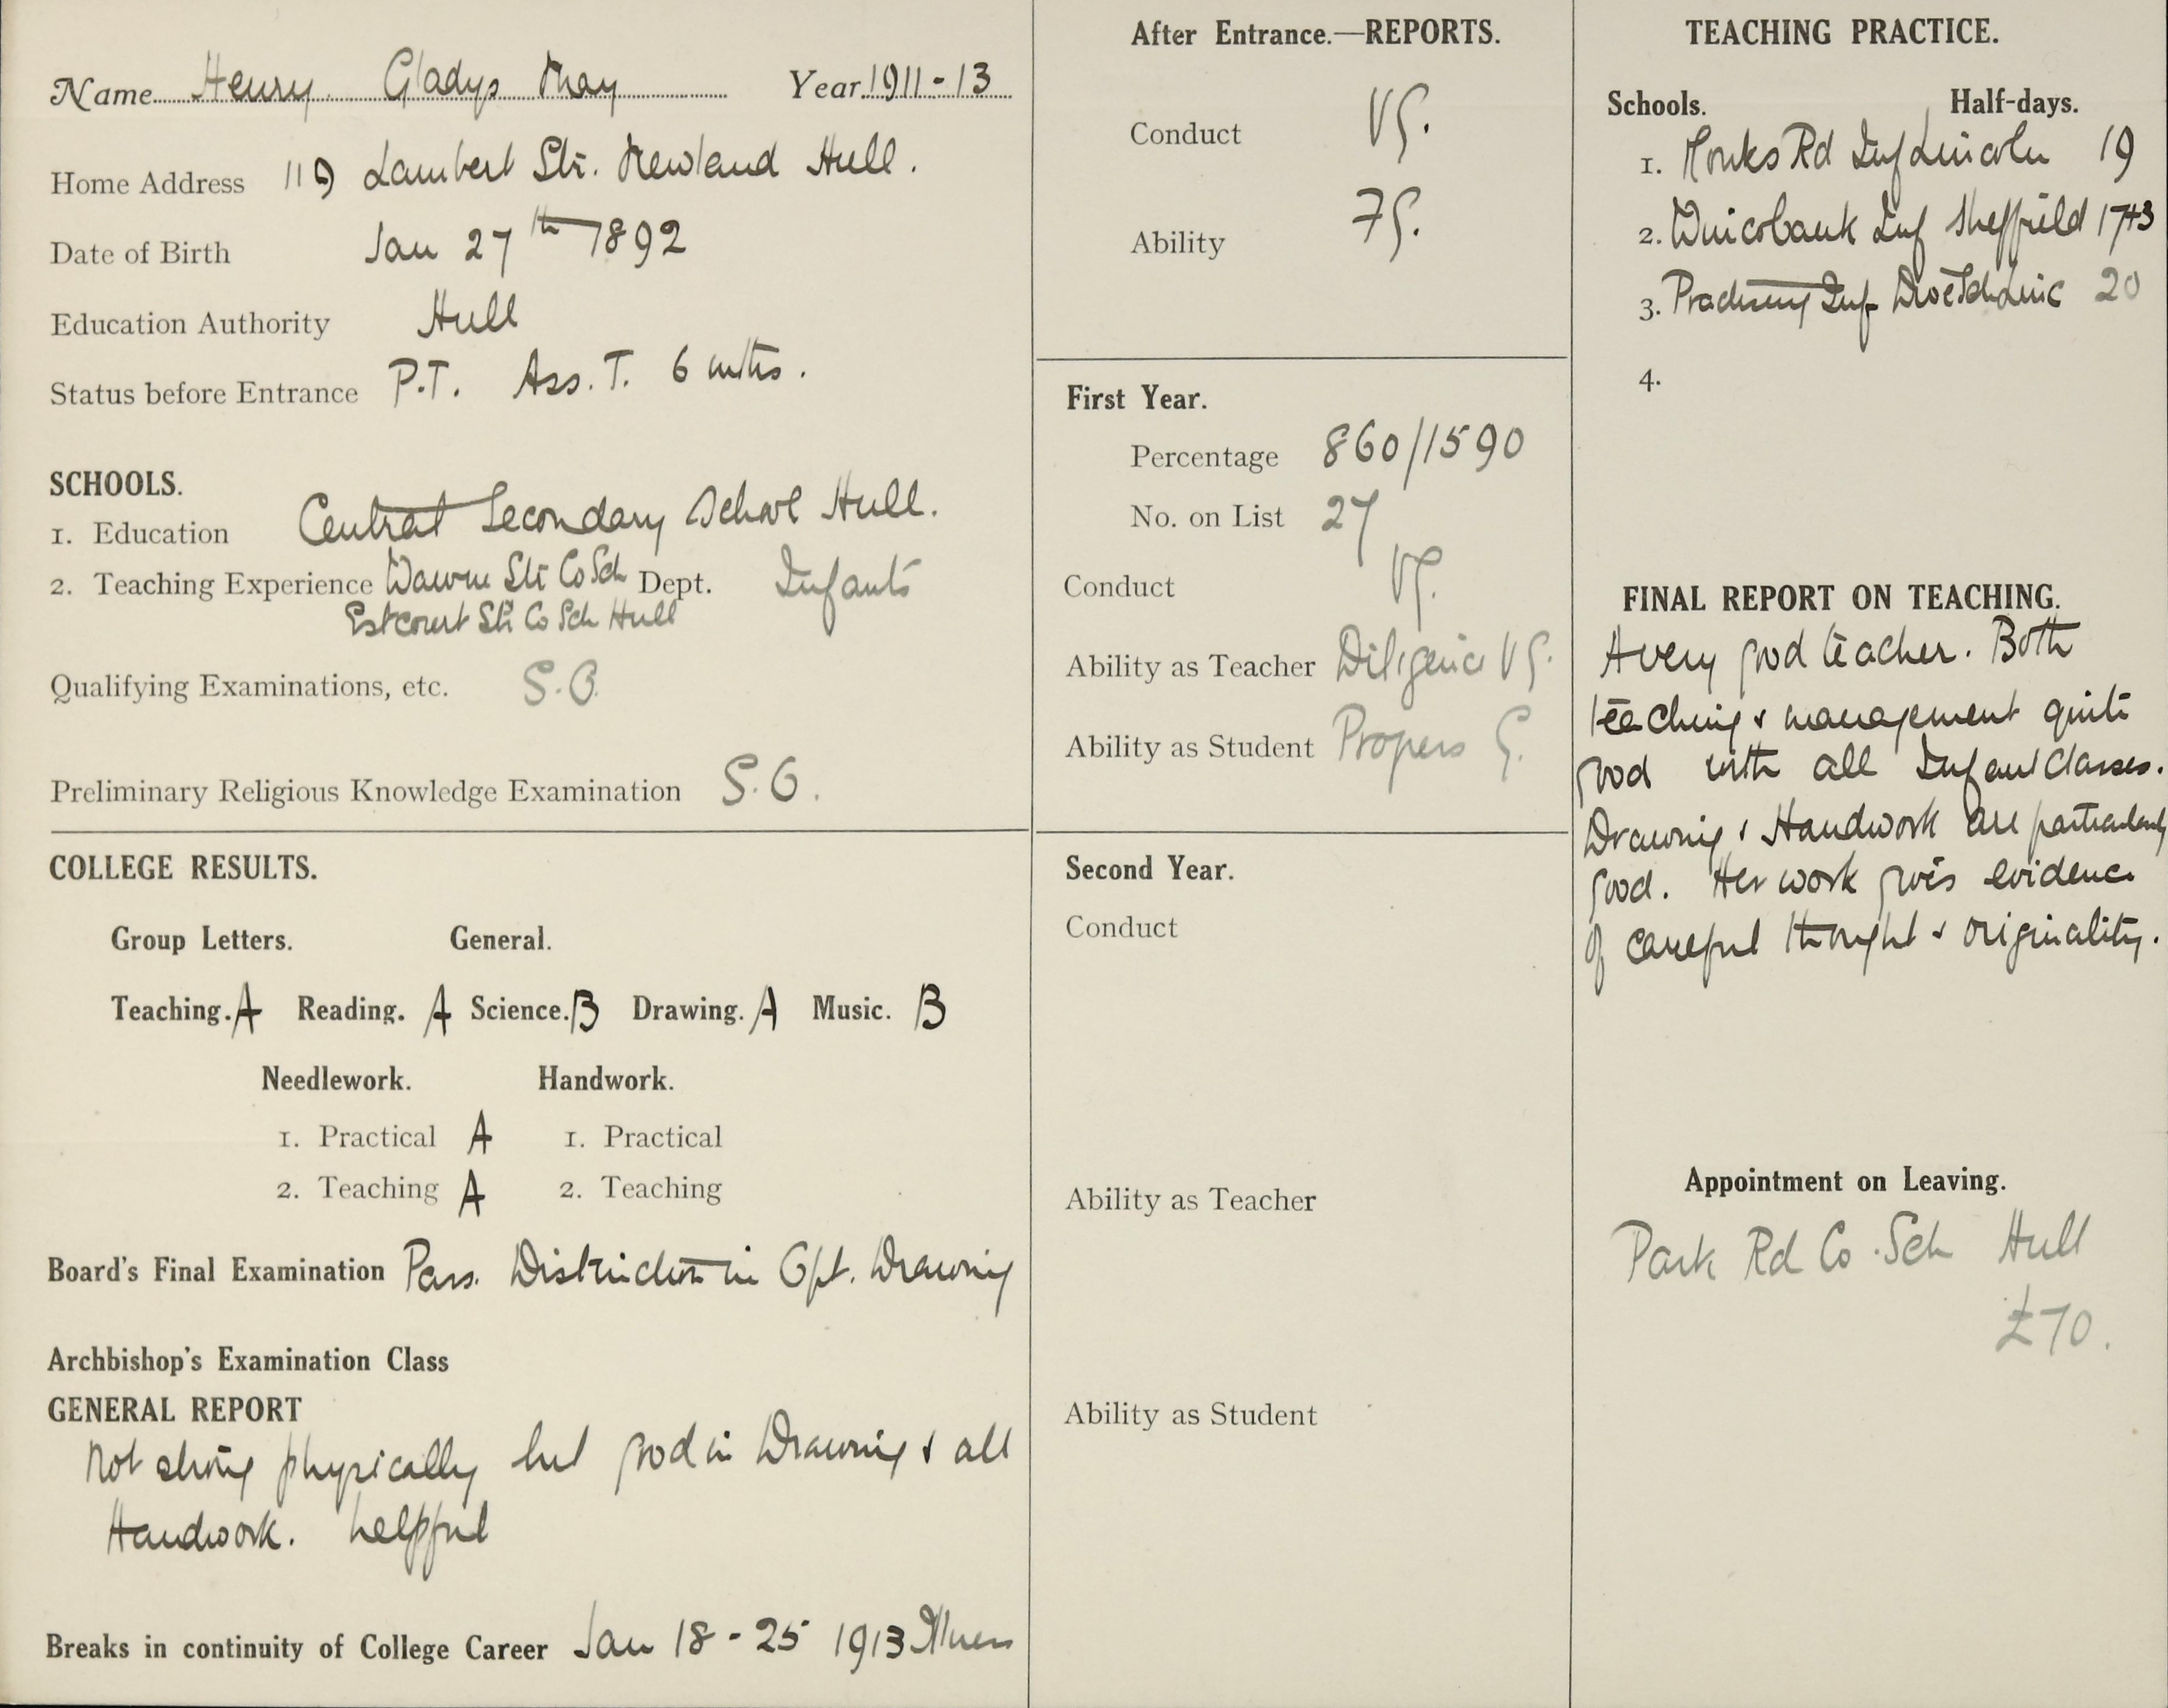 Name Henry Gladys May Year 1911-13
Home Address 119 Lambert Str. Newland Hull.
Date of Birth Jan 27th 1892
Education Authority Hull
Status before Entrance P.T. Ass. T. 6 mths.
SCHOOLS.
1. Education Central Secondary School Hull.
2. Teaching Experience Wawne Str Co Sch Dept. Infants
Estcourt Str Co Sch Hull
Qualifying Examinations, etc. S.C.
Preliminary Religious Knowledge Examination
COLLEGE RESULTS.
Group Letters. General.
Teaching. A Reading. A Science. B Drawing. A Music. B
Needlework. Handwork.
1. Practical A 1. Practical
2. Teaching A 2. Teaching
Board's Final Examination Pass. Distinction in Opt. Drawing
Archbishop's Examination Class
GENERAL REPORT
Not strong physically but good in Drawing & all
Handwork. helpful
Breaks in continuity of College Career Jan 18 - 25 1913 Illness
After Entrance.—REPORTS.
Conduct VG.
Ability FG.
First Year.
Percentage 860/1590
No. on List 27
Conduct VG.
Ability as Teacher Diligence VG.
Ability as Student Progress G.
Second Year.
Conduct
Ability as Teacher
Ability as Student
TEACHING PRACTICE.
Schools. Half-days.
1. Monks Rd Inf Lincoln 19
2. Wincobank Inf Sheffield 17+3
3. Practising Inf 20
4.
FINAL REPORT ON TEACHING.
A very good teacher. Both
teaching & management quite
good with all Infant Classes.
Drawing & Handwork are particularly
good. Her work gives evidence
of careful thought & originality.
Appointment on Leaving.
Park Rd Co. Sch Hull
£70.